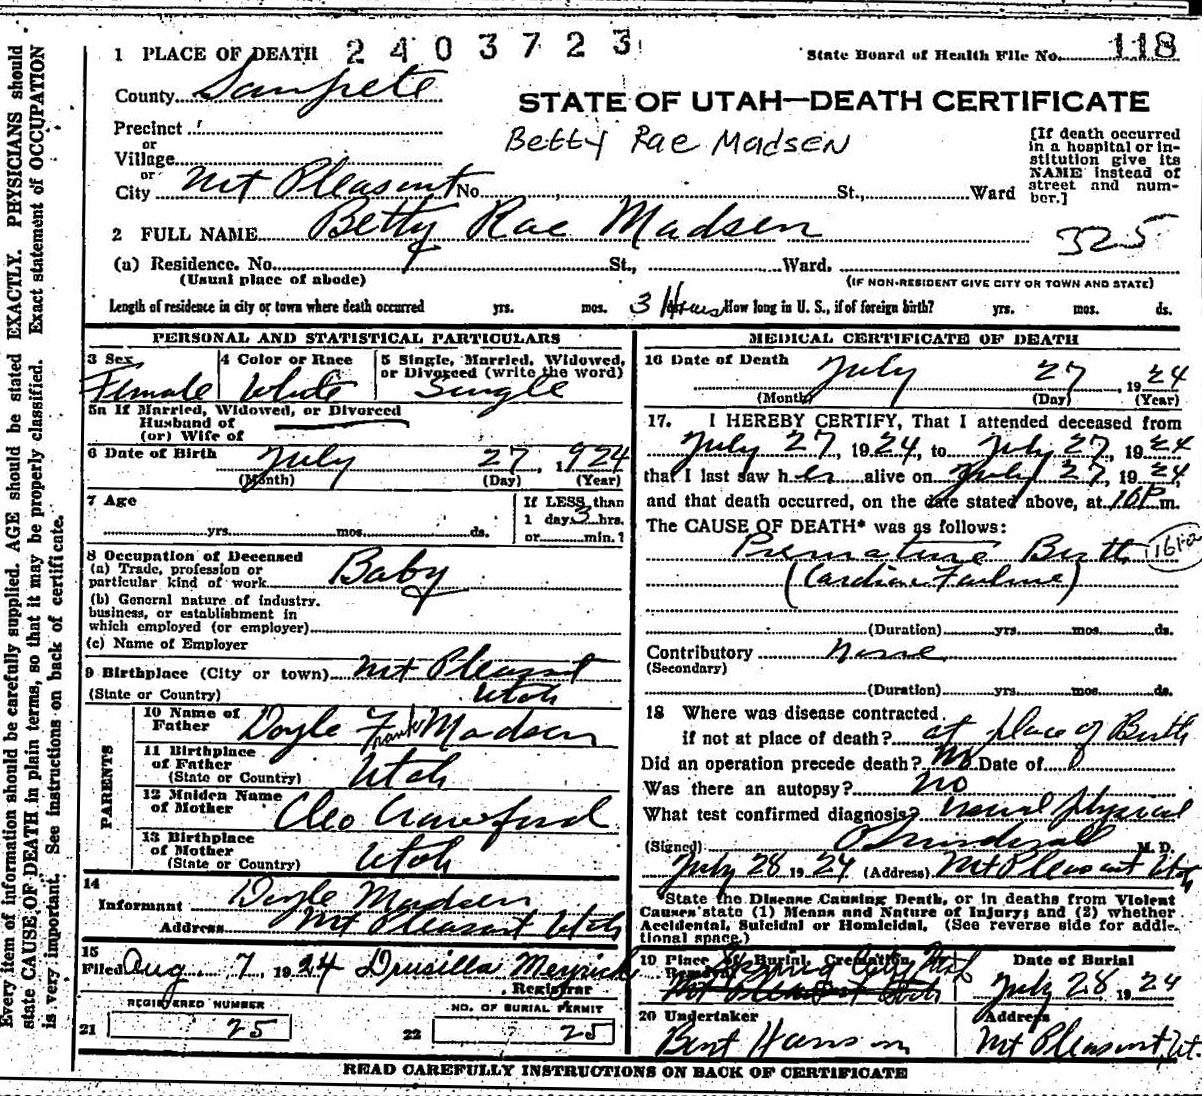 1 PLACE OF DEATH 2403723 State Board of Health File No. 118
County Sanpete
STATE OF UTAH—DEATH CERTIFICATE
Precinct
or
Village
or
City Mt Pleasant No. St., Ward
Betty Rae Madsen
[If death occurred
in a hospital or in-
stitution give its
NAME instead of
street and num-
ber.]
2 FULL NAME Betty Rae Madsen
325
(a) Residence. No. St., Ward.
(Usual place of abode) (IF NON-RESIDENT GIVE CITY OR TOWN AND STATE)
Length of residence in city or town where death occurred yrs. mos. 3 Hours How long in U. S., if of foreign birth? yrs. mos. ds.
PERSONAL AND STATISTICAL PARTICULARS
3 Sex 4 Color or Race 5 Single, Married, Widowed,
or Divorced (write the word)
Female White Single
5a If Married, Widowed, or Divorced
Husband of
(or) Wife of
6 Date of Birth July 27, 1924
(Month) (Day) (Year)
7 Age If LESS than
1 day 3 hrs.
yrs. mos. ds. or min.?
8 Occupation of Deceased
(a) Trade, profession or
particular kind of work Baby
(b) General nature of industry.
business, or establishment in
which employed (or employer)
(c) Name of Employer
9 Birthplace (City or town) Mt Pleasant
(State or Country) Utah
PARENTS
10 Name of
Father Doyle Frank Madsen
11 Birthplace
of Father
(State or Country) Utah
12 Maiden Name
of Mother Cleo Crawford
13 Birthplace
of Mother
(State or Country) Utah
14
Informant Doyle Madsen
Address Mt Pleasant Utah
15
Filed Aug. 7 1924 Drusilla Meyrick
Registrar
REGISTERED NUMBER NO. OF BURIAL PERMIT
21 25 22 25
MEDICAL CERTIFICATE OF DEATH
16 Date of Death July 27, 1924
(Month) (Day) (Year)
17. I HEREBY CERTIFY, That I attended deceased from
July 27, 1924, to July 27, 1924
that I last saw her alive on July 27, 1924,
and that death occurred, on the date stated above, at 10 P m.
The CAUSE OF DEATH* was as follows:
Premature Birth 161-a
(Cardiac Failure)
(Duration) yrs. mos. ds.
Contributory None
(Secondary)
(Duration) yrs. mos. ds.
18 Where was disease contracted
if not at place of death? at place of Birth
Did an operation precede death? No Date of
Was there an autopsy? no
What test confirmed diagnosis? usual physical
(Signed) M. D.
July 28 1924 (Address) Mt Pleasant Utah
*State the Disease Causing Death, or in deaths from Violent
Causes state (1) Means and Nature of Injury; and (2) whether
Accidental, Suicidal or Homicidal. (See reverse side for addi-
tional space.)
19 Place of Burial, Cremation, Date of Burial
Removal Spring City Ut
Mt Pleasant Utah July 28 1924
20 Undertaker Address
Bent Hansen Mt Pleasant, Ut.
READ CAREFULLY INSTRUCTIONS ON BACK OF CERTIFICATE
Every item of information should be carefully supplied. AGE should be stated EXACTLY. PHYSICIANS should
state CAUSE OF DEATH in plain terms, so that it may be properly classified. Exact statement of OCCUPATION
is very important. See instructions on back of certificate.